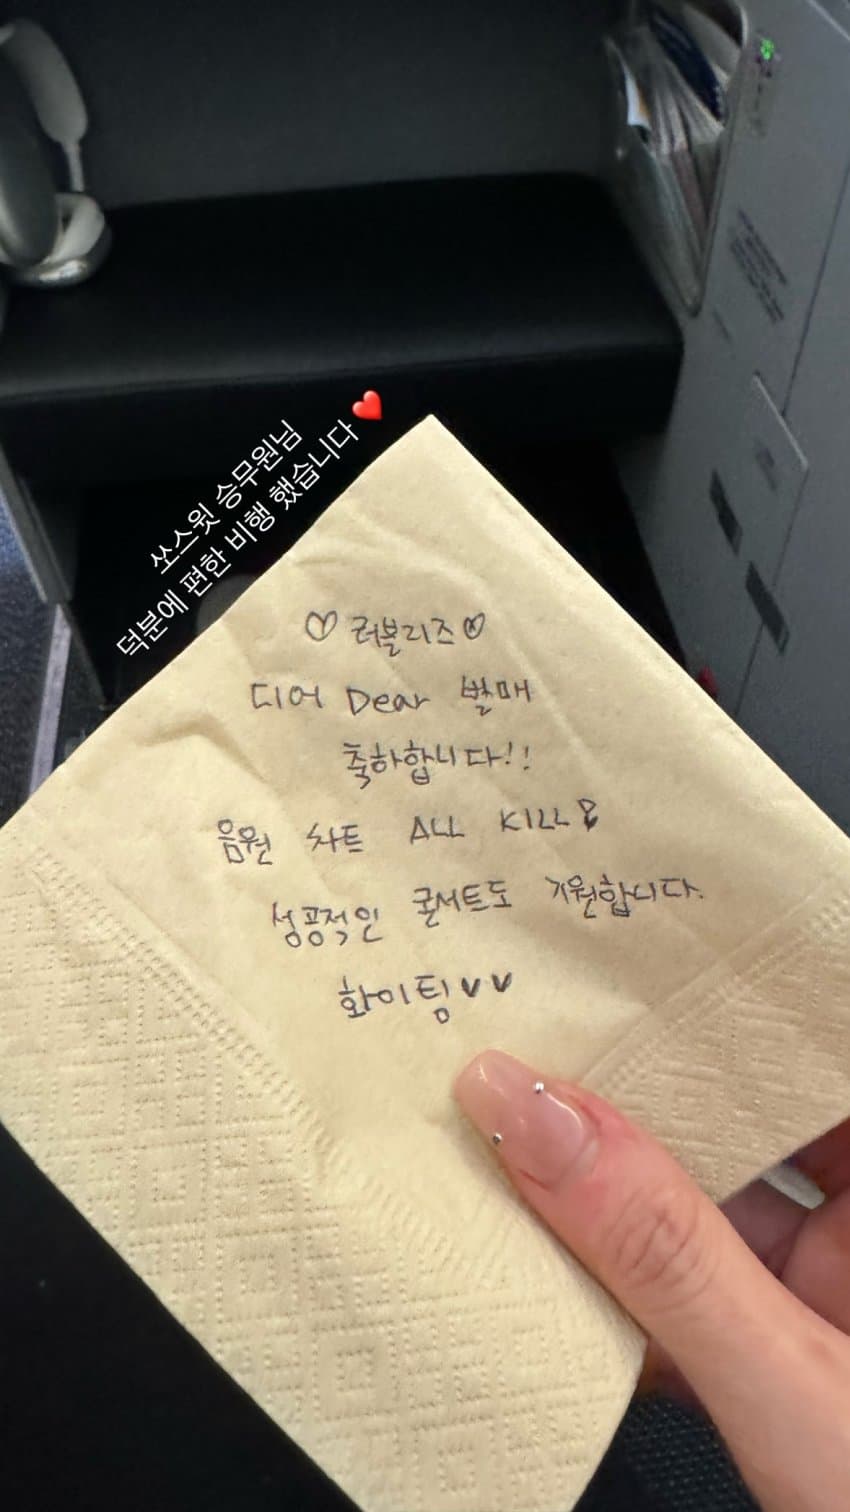 쏘스윗 승무원님
덕분에 편한 비행 했습니다❤️
♡러블리즈♡
디어 Dear 발매
축하합니다!!
음원 차트 ALL KILL
성공적인 콘서트도 기원합니다.
화이팅♥♥